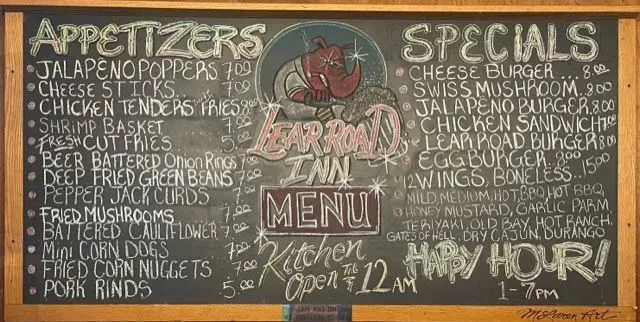 APPETIZERS
JALAPENO POPPERS 7.00
CHEESE STICKS.. 7.00
CHICKEN TENDERS FRIES 8.00
SHRIMP BASKET 7.00
FRESH CUT FRIES 5.00
BEER BATTERED ONION RINGS 7.00
DEEP FRIED GREEN BEANS 7.00
PEPPER JACK CURDS 7.00
FRIED MUSHROOMS 7.00
BATTERED CAULIFLOWER 7.00
MINI CORN DOGS 7.00
FRIED CORN NUGGETS 7.00
PORK RINDS 5.00
LEAR ROAD
INN
MENU
Kitchen
Open TIL 12 AM
SPECIALS
CHEESE BURGER ... 8.00
SWISS MUSHROOM.. 8.00
JALAPENO BURGER 8.00
CHICKEN SANDWICH 7.00
LEAR ROAD BURGER 8.00
EGG BURGER... 8.00
12 WINGS, BONELESS... 15.00
MILD, MEDIUM, HOT, BBQ, HOT BBQ,
HONEY MUSTARD, GARLIC PARM
TERIYAKI, OLD BAY, HOT RANCH,
GATES OF HELL, DRY CAJUN, DURANGO
HAPPY HOUR!
1-7PM
McLaren Art